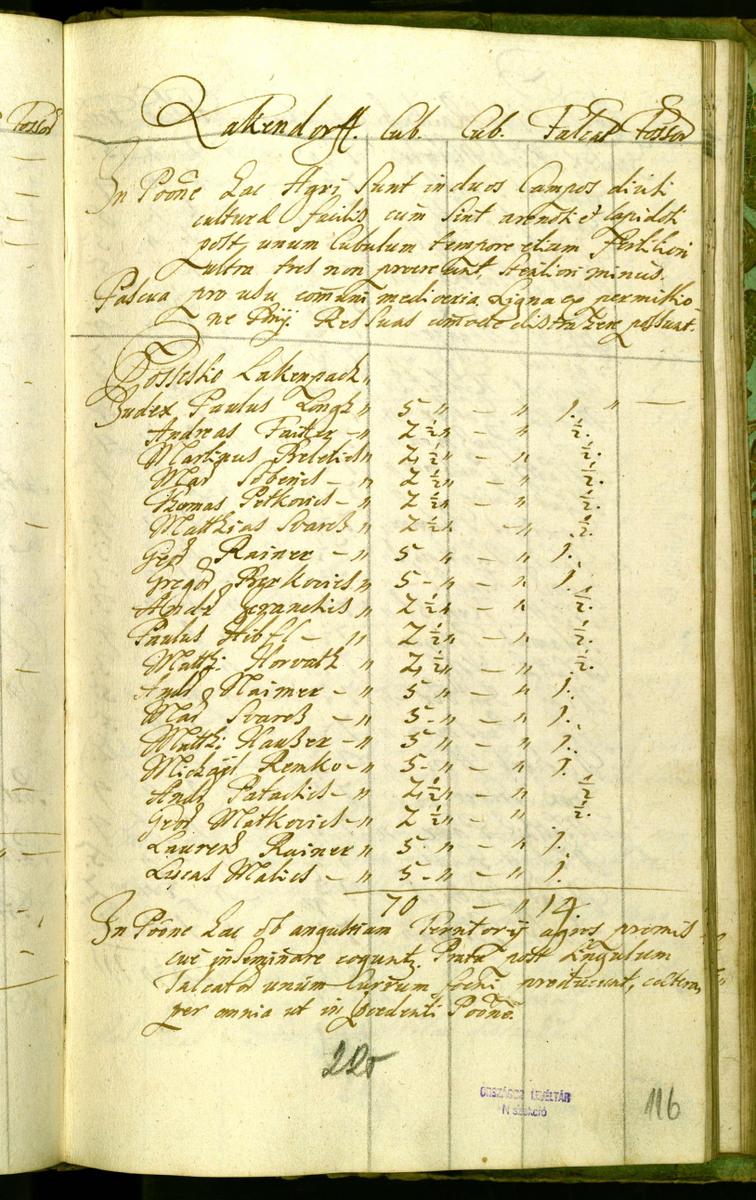 Lakendorff. Cub. Cub. Falcat Fossor
In Poõne hac Agri sunt in duos Campos divisi
culturæ facilis cum sint arenosi et lapidosi
post unum Cubulum tempore etiam fertiliori
ultra tres non provenerunt, steriliori minus.
Pascua pro usu com̃uni mediocria Ligna ex permissio
ne Dnij. Res suas com̃ode distrahere possunt.
Possessio Lakenpach
Judex Paulus Longh " 5 " — " 1. " —
Andreas Faister — " 2 ½ " — " ½.
Martinus " 2 ½ " — " ½.
Mat — " 2 ½ " — " ½.
Thomas Petkovics — " 2 ½ " — " ½.
Matthias Svarcz " 2 ½ " — " ½.
Geor Rainer — " 5 " — " 1.
Gregor " 5 - " — " 1.
Andr " 2 ½ " — " ½.
Paulus — " 2 ½ " — " ½.
Matthi Horvath " 2 ½ " — " ½.
Andr Maimer — " 5 - " — " 1.
Mat Svarcz — " 5 - " — " 1.
Matthi Hauszer — " 5 " — " 1.
Michael Remko — " 5 - " — " 1.
Andr Patachics — " 2 ½ " — " ½
Geor Matkovics — " 2 ½ " — " ½.
Laurens Rainer " 5 - " — " 1.
Lucas Malics — " 5 - " — " 1.
70 — " 14
In Poõne hac ob angustiam Territorij agros promis
cue inseminare cogunt. Prata post singulum
Falcator unum Currum foeni producunt, cætera
per omnia ut in præcedenti Poõne.
220
ORSZÁGOS LEVÉLTÁR
N szekció
116